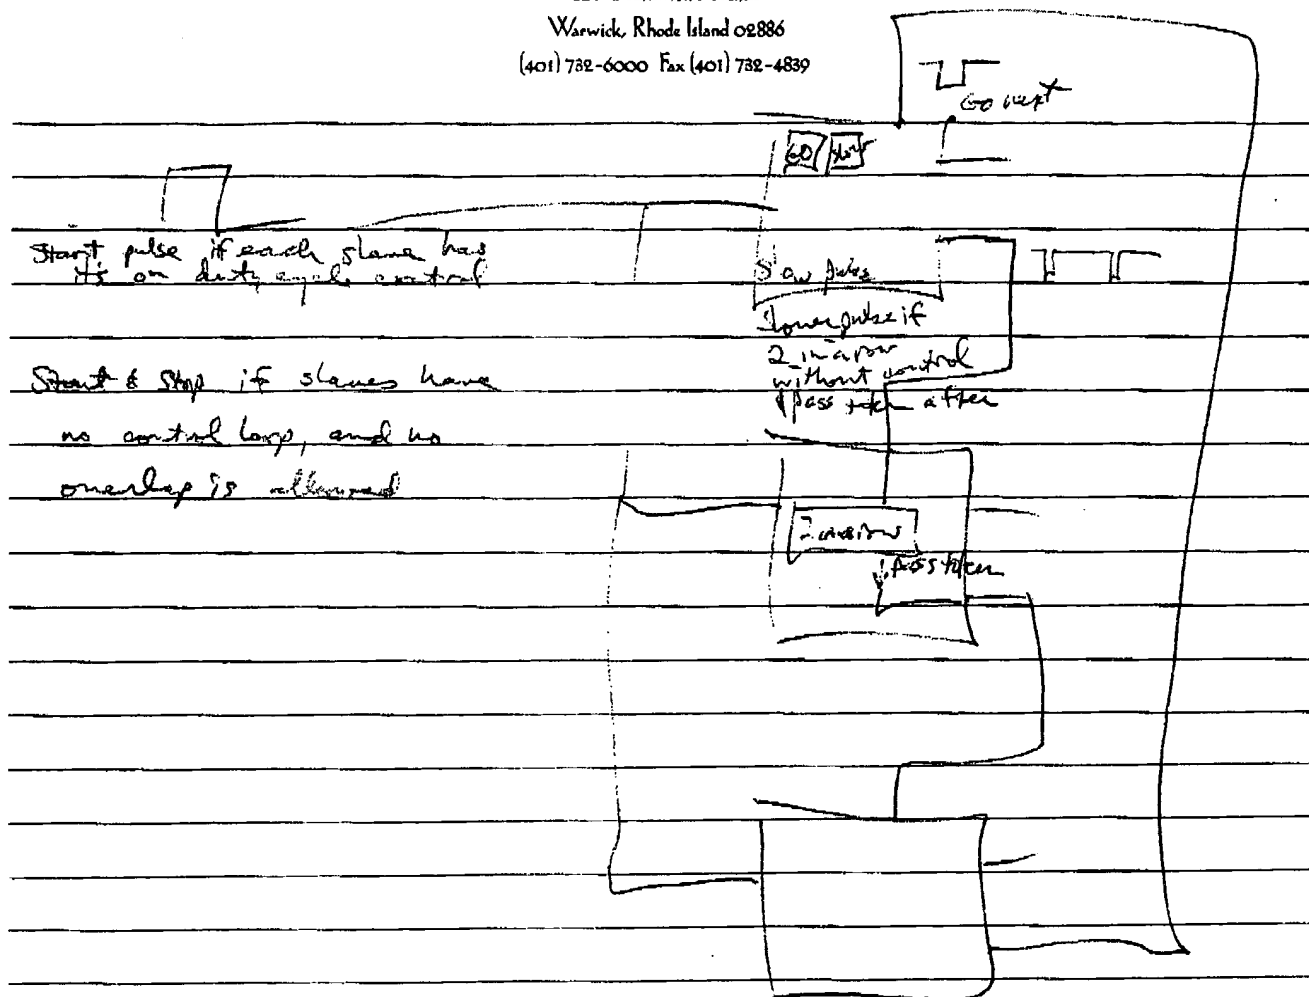 Warwick, Rhode Island 02886
(401) 732-6000 Fax (401) 732-4839
Go next
GO
Start pulse if each slave has
it's on duty cycle control
pulse if
2 in a row
without control
pass token after
Start & Stop if slaves have
no control loop, and no
overlap is allowed
pass token